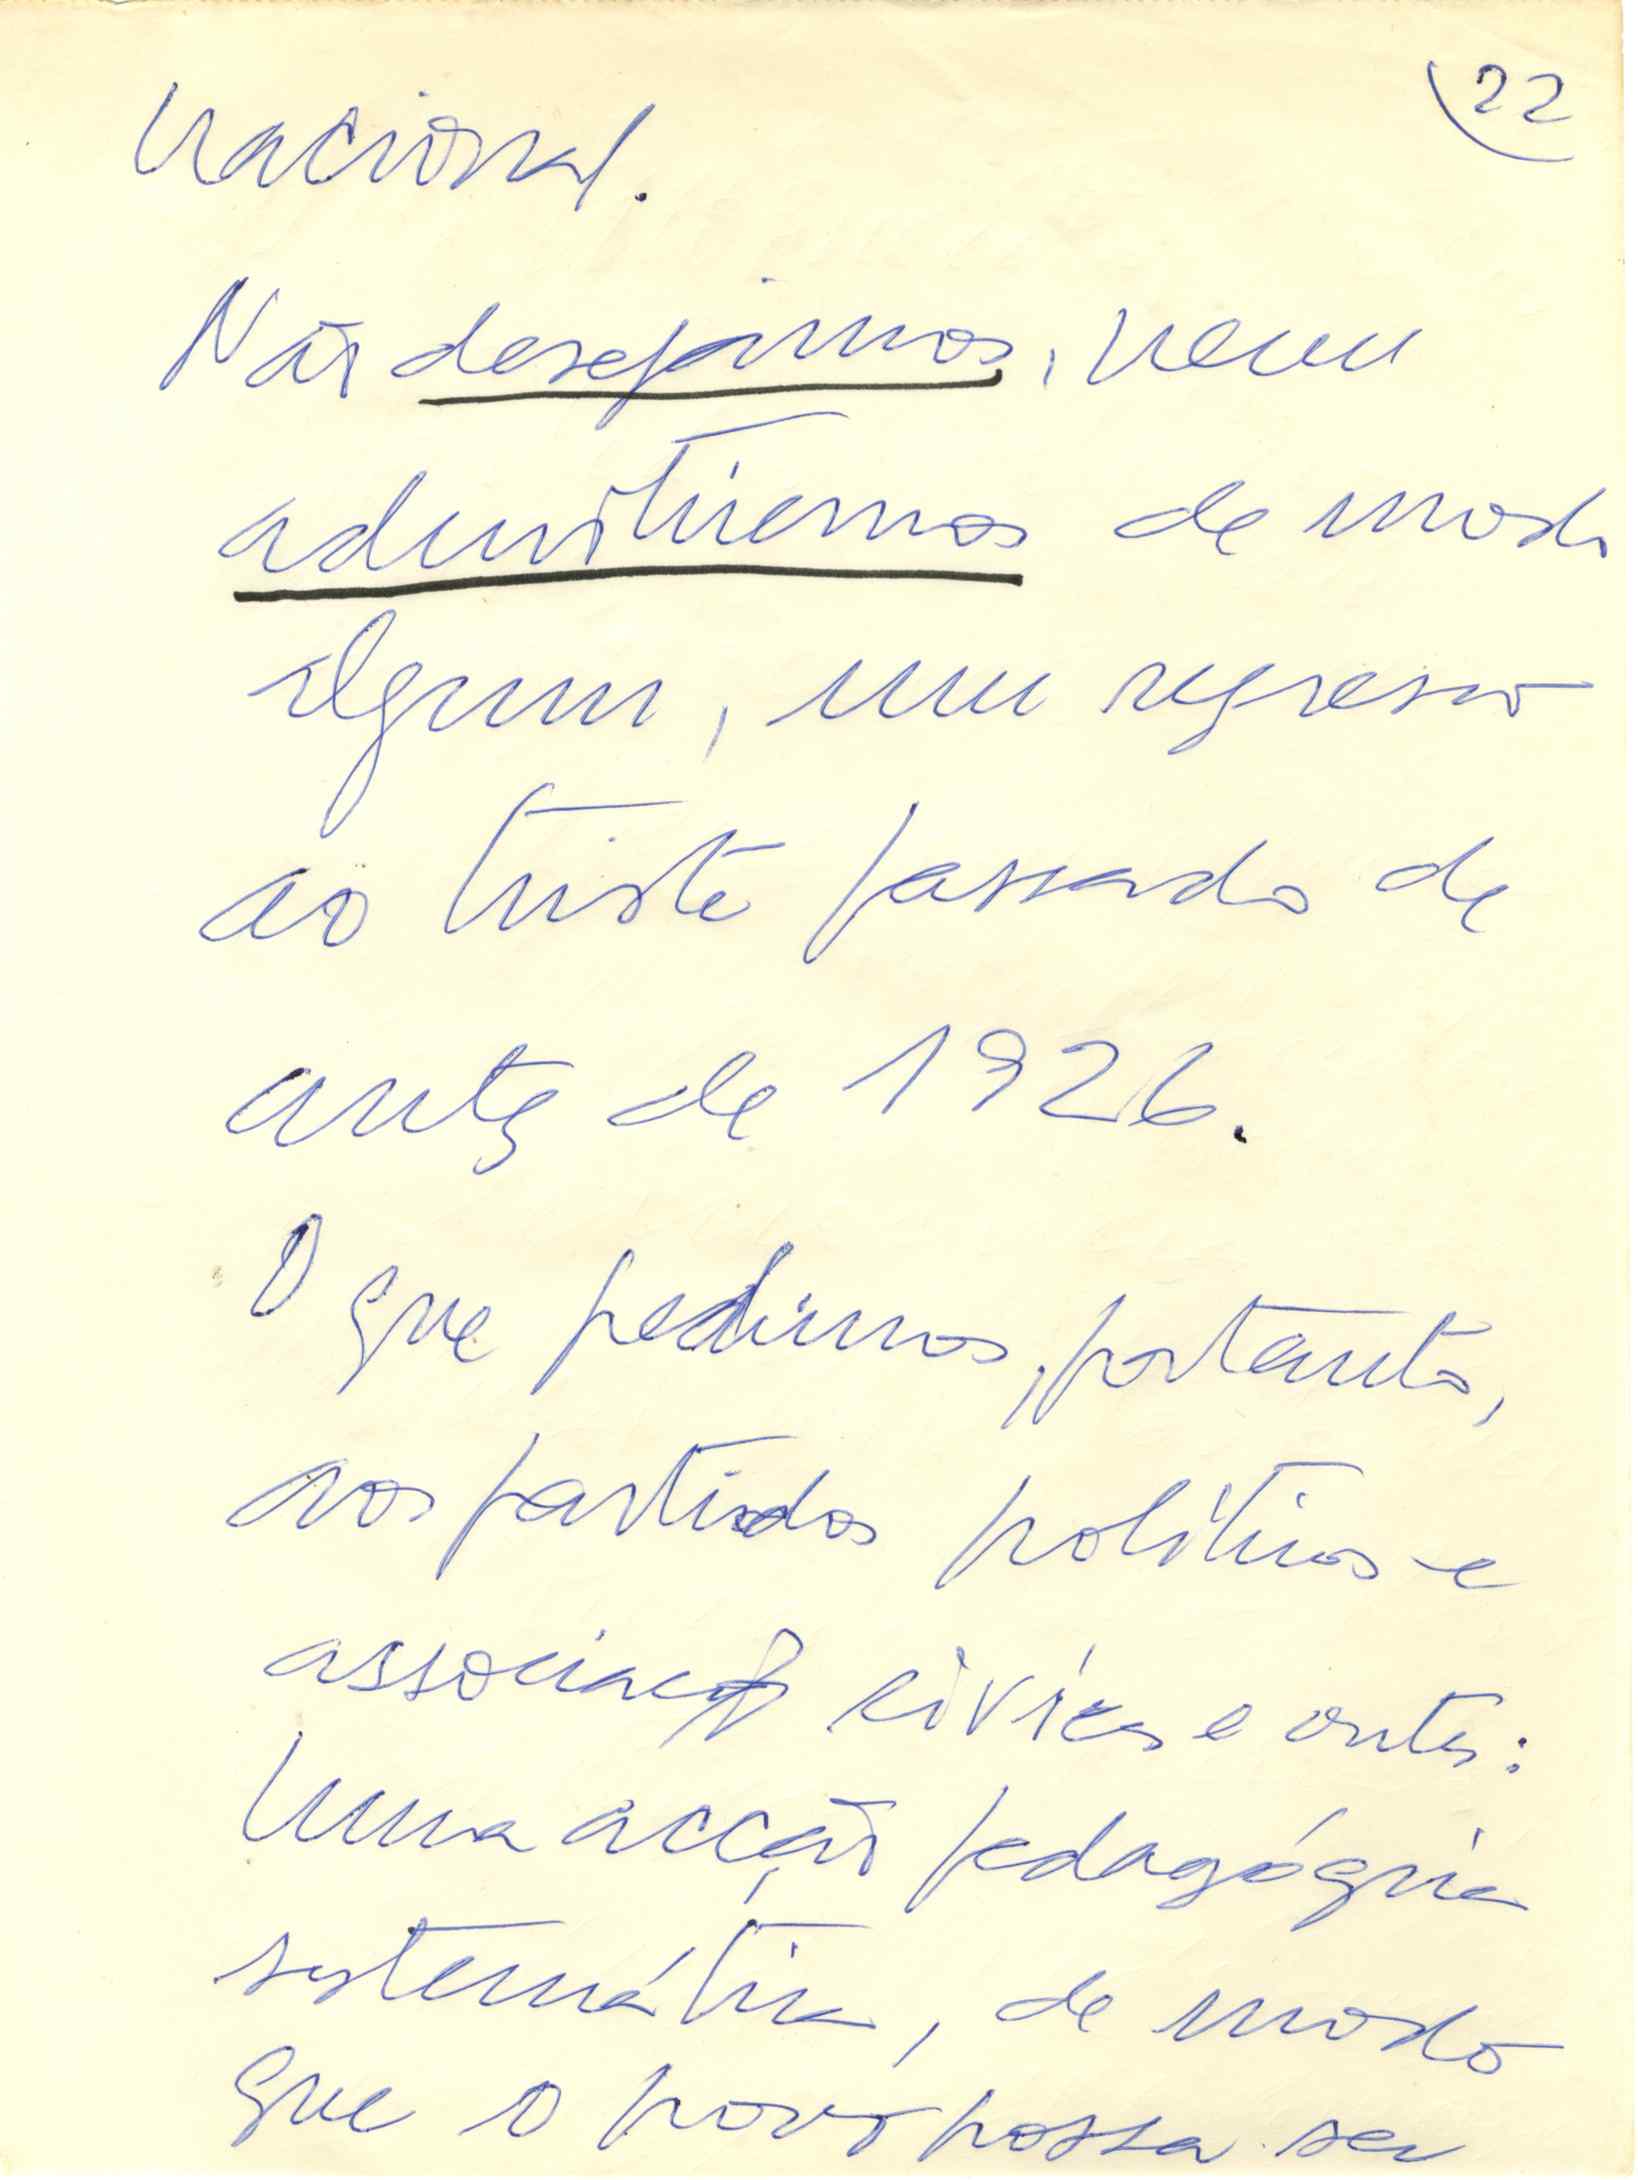 22
nacional.
Não desejamos, nem
admitiremos de modo
algum, um regresso
ao triste passado de
antes de 1926.
O que pedimos, portanto,
aos partidos políticos e
associações cívicas e outras:
Uma acção pedagógica
sistemática, de modo
que o povo possa ser